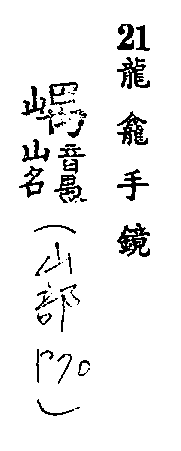 21龍龕手鏡
音愚山名(山部
P70)